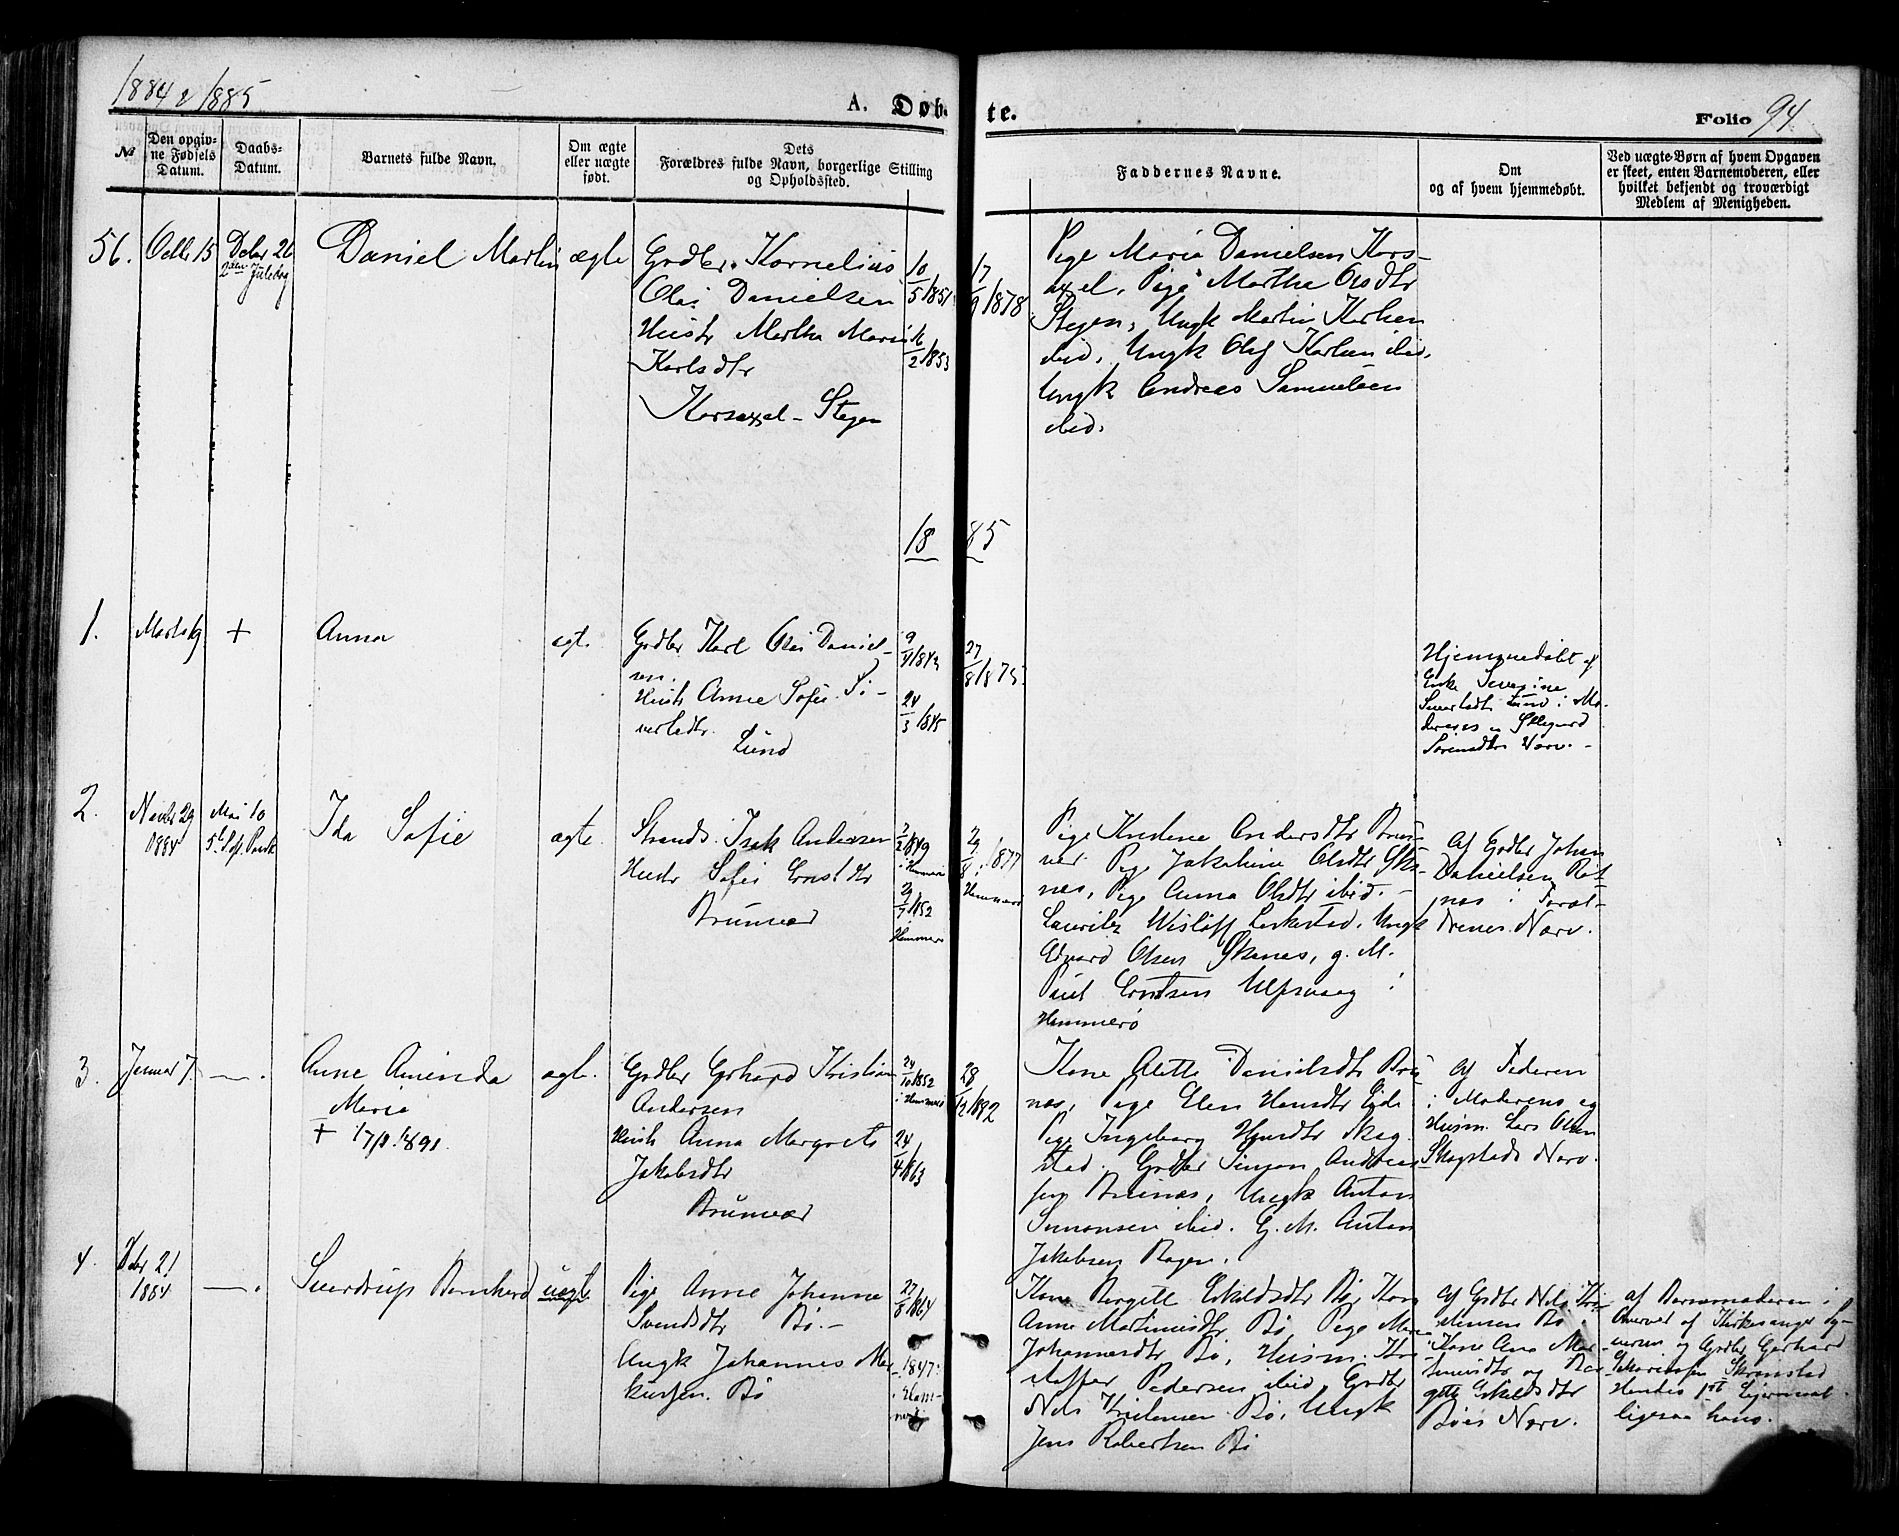 1884 & 1885
A. Døb-
te.
Folio 94.
№
Den opgiv-
ne Fødsels
Datum.
Daabs-
Datum.
Barnets fulde Navn.
Om ægte
eller uægte
født.
Dets
Forældres fulde Navn, borgerlige Stilling
og Opholdssted.
Faddernes Navne.
Om
og af hvem hjemmedøbt.
Ved uægte Børn af hvem Opgaven
er skeet, enten Barnemoderen, eller
hvilket bekjendt og troværdigt
Medlem af Menigheden.
56.
Octb 15
Debr 26
2den Juledag
Daniel Martin
ægte
Grdbr. Kornelius
Olai Danielsen
Hustr Martha Marie
Karlsdtr
Korsøxel - Stegen
10/5/1851
16/2/1853
17/9/1878
Pige Maria Danielsen Kors-
øxel, Pige Marthe Olsdtr
Stegen, Ungk Martin Karlsen
ibid, Ungk Olaf Karlsen ibid,
Ungk Andreas Samuelsen
ibid.
18 85
1.
Marts 19
+
Anna
ægte
Grdbr Karl Olai Daniel-
sen.
Hustr Anne Sofie Si-
vertsdtr.
Lund
9/4/1843
24/3/1845
27/8/1875
Hjemmedøbt af
Enke Severine
Sivertsdtr Lund i Mo-
derens og Ellegard
Sørensdtr Nærv. -
2.
Novbr 29
1884
Mai 10
5te S. ef. Paask
Ida Sofie
ægte.
Strands. Isak Andersen
Hustr Sofie Ernstdtr
Brunvær
2/2/1849
i Hammerø
29/7/1852
Hammerø
29/8/1877
Hammerø
Pige Kristine Andersdtr Brun-
vær. Pige Jakobine Olsdtr Ska-
nas, Pige Anna Olsdtr ibid. -
Lauritz Wisløff Leikestad, Ungk
Edvard Olsen Skanes, g. M.
Paul Erntsen Ulfsvaag i
Hammerø
Af Grdbr Johan
Danielsen Røt-
nes i Foræl-
drenes Nærv.
3.
Januar 7.
— .
Anne Aminda
Marie
+ 17/1 1891.
ægte.
Grdbr Gerhard Kristian
Andersen
Hustr Anna Margrete
Jakobsdtr
Brunvær
24/10/1852
i Hammerø
24/4/1863
28/12/1882
Kone Alette Danielsdtr Bru-
nas, Pige Elen Hansdtr Eide
Pige Ingeborg Hansdtr Skog-
stad. Grdbr Simon Andrea-
sen Brunæs, Ungk Anton
Simonsen ibid. G. M. Anton
Jakobsen Bogen.
Af Faderen
i Moderens og
Husm. Lars Olsen
Skogstads Nærv.
4.
Debr 21
1884
— .
Sverdrup Bernhard
uægte
Pige Anne Johanna
Svendsdtr Bø. -
Ungk Johannes Mar-
kussen. Bø
27/8/1864
1847.
Kone Bergitte Eskildsdtr Bø, Kone
Anne Martinusdtr Bø, Pige Maren
Johannesdtr Bø, Husm. Kri-
stoffer Pedersen ibid, Grdbr
Nils Kristensen Bø, Ungk
Jens Robertsen Bø
Af Grdbr Nils Kri-
stensen Bø i
Kone Ana Mar-
tinusdtr og Ber-
gitte Eskildsdtr
Bøes Nærv.
af Barnemoderen i
Overvær af Kirkesanger
og Grdbr Gerhard
Skramstad
Hendes 1ste Leiermaal
ligesaa hans.